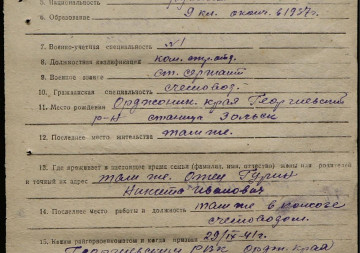 5. Национальность
6. Образование 9 кл. оконч. в 1937г.
7. Военно-учетная специальность №1
8. Должностная квалификация ком. отд.
9. Военное звание ст. сержант
10. Гражданская специальность счетовод.
11. Место рождения Орджоник. края Георгиевский
р-н станица Зольск
12. Последнее место жительства там же.
13. Где проживает в настоящее время семья (фамилия, имя, отчество) жены или родителей
и точный их адрес там же. Отец
Никита Иванович
14. Последнее место работы и должность там же в колхозе
счетоводом.
15. Каким райгорвоенкоматом и когда призван 29/IX-41г.
Георгиевским РВК Ордж. края